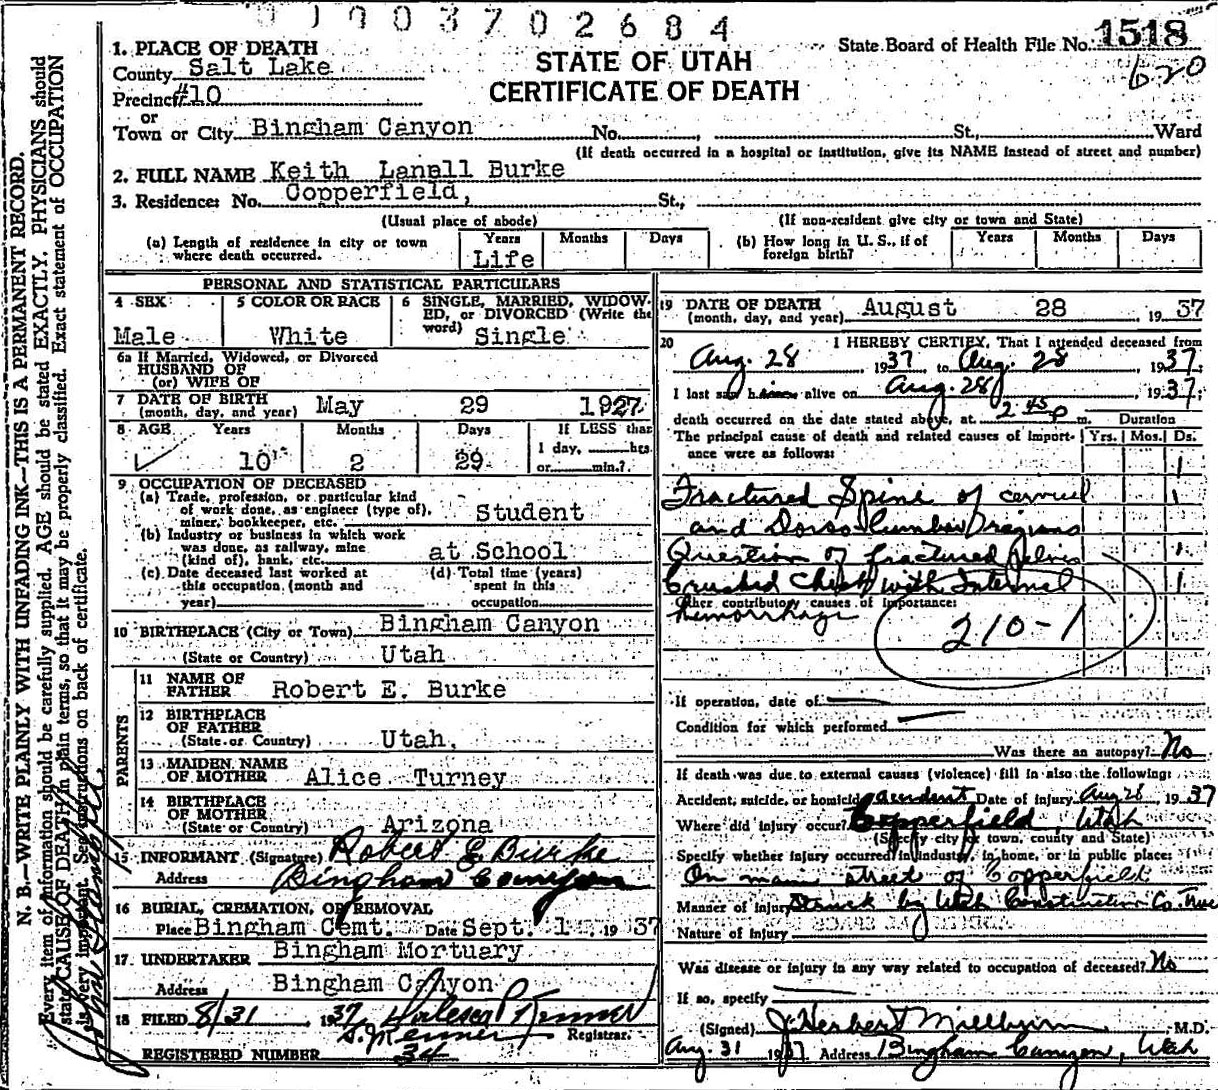 0 1 9 0 3 7 0 2 6 8 4
State Board of Health File No. 1518
620
STATE OF UTAH
CERTIFICATE OF DEATH
1. PLACE OF DEATH
County Salt Lake
Precinct #10
or
Town or City Bingham Canyon No. , St., Ward
(If death occurred in a hospital or institution, give its NAME instead of street and number)
2. FULL NAME Keith Lanall Burke
3. Residence: No. Copperfield, St.,
(Usual place of abode) (If non-resident give city or town and State)
(a) Length of residence in city or town where death occurred. Years Months Days
Life
(b) How long in U. S., if of foreign birth? Years Months Days
PERSONAL AND STATISTICAL PARTICULARS
4 SEX 5 COLOR OR RACE 6 SINGLE, MARRIED, WIDOW-
ED, or DIVORCED (Write the
word)
Male White Single
6a If Married, Widowed, or Divorced
HUSBAND OF
(or) WIFE OF
7 DATE OF BIRTH
(month, day, and year) May 29 1927
8 AGE Years Months Days If LESS than
1 day, hrs.
or min.?
10 2 29
9 OCCUPATION OF DECEASED
(a) Trade, profession, or particular kind
of work done, as engineer (type of),
miner, bookkeeper, etc. Student
(b) Industry or business in which work
was done, as railway, mine
(kind of), bank, etc. at School
(c) Date deceased last worked at
this occupation (month and
year)
(d) Total time (years)
spent in this
occupation
10 BIRTHPLACE (City or Town) Bingham Canyon
(State or Country) Utah
PARENTS
11 NAME OF
FATHER Robert E. Burke
12 BIRTHPLACE
OF FATHER
(State or Country) Utah.
13 MAIDEN NAME
OF MOTHER Alice Turney
14 BIRTHPLACE
OF MOTHER
(State or Country) Arizona
15 INFORMANT (Signature) Robert E Burke
Address Bingham Canyon
16 BURIAL, CREMATION, OR REMOVAL
Place Bingham Cemt. Date Sept. 1 1937
17. UNDERTAKER Bingham Mortuary
Address Bingham Canyon
18 FILED 8/31 1937
Registrar.
REGISTERED NUMBER 34
19 DATE OF DEATH
(month, day, and year) August 28 , 19 37
20 I HEREBY CERTIFY, That I attended deceased from
Aug. 28 , 1937, to Aug. 28 , 1937;
I last saw him alive on Aug. 28 , 1937;
death occurred on the date stated above, at 2 45 p m. Duration
The principal cause of death and related causes of import-
ance were as follows: Yrs. Mos. Ds.
1
Fractured Spine of cervical 1
and Dorso-lumbar regions
Question of fractured Pelvis 1
Crushed Chest with Internal 1
Other contributory causes of importance:
hemorrhage
210-1
If operation, date of
Condition for which performed
Was there an autopsy? No
If death was due to external causes (violence) fill in also the following:
Accident, suicide, or homicide accident Date of injury Aug 28 , 19 37
Where did injury occur? Copperfield, Utah
(Specify city or town, county and State)
Specify whether injury occurred in industry, in home, or in public place:
On main street of Copperfield
Manner of injury Struck by Utah Construction Co. Truck
Nature of injury
Was disease or injury in any way related to occupation of deceased? No
If so, specify
(Signed) J. Herbert Millburn M.D.
Aug. 31 1937 Address Bingham Canyon, Utah
N. B.—WRITE PLAINLY WITH UNFADING INK—THIS IS A PERMANENT RECORD.
Every item of information should be carefully supplied. AGE should be stated EXACTLY. PHYSICIANS should
state CAUSE OF DEATH in plain terms, so that it may be properly classified. Exact statement of OCCUPATION
is very important. See instructions on back of certificate.